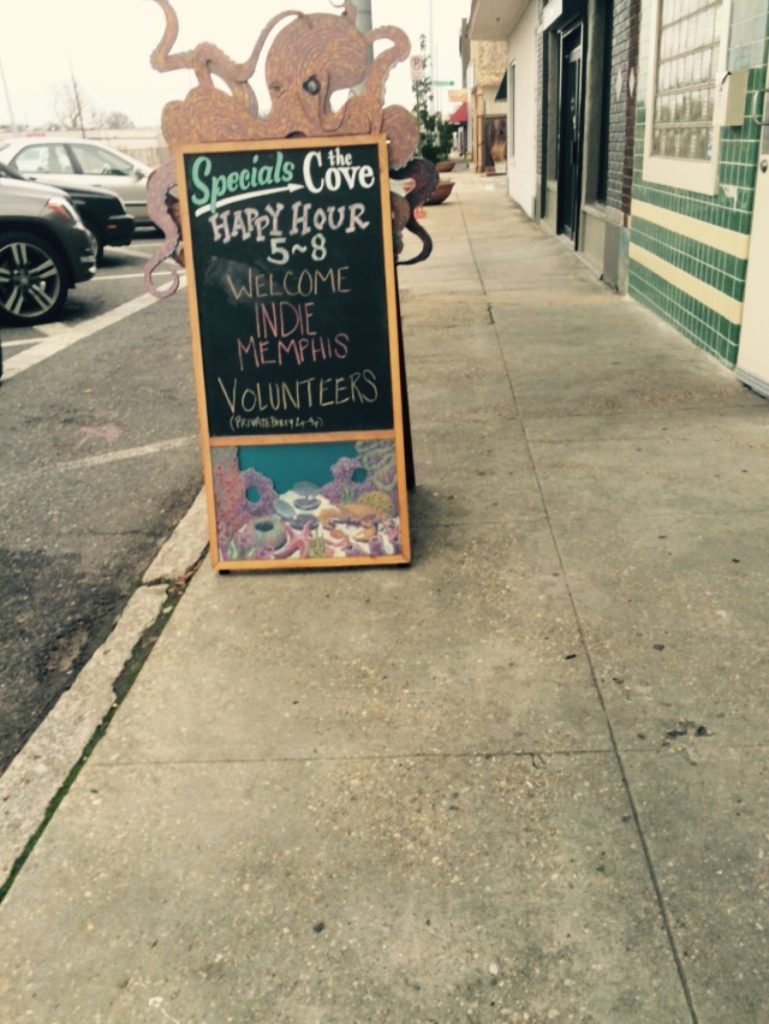 Specials the Cove
HAPPY HOUR
5~8
WELCOME
INDIE
MEMPHIS
VOLUNTEERS
(PRIVATE PARTY